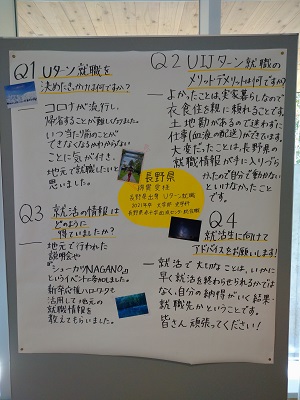 Q1 Uターン就職を
決めたきっかけは何ですか?
コロナが流行し、
帰省することが難しくなりました。
いつ当たり前のことが
できなくなるかわからない
ことに気が付き、
地元で就職したいと
思いました。
Q2 UIJターン就職の
メリット・デメリットは何ですか?
よかったことは、実家暮らしなので
衣食住を親に頼れることです。
土地勘があるので迷わずに
仕事(血液の配送)ができます。
大変だったことは、長野県の
就職情報が手に入りづら
かったので自分で動かない
といけなかったこと
です。
長野県
長野県出身 Uターン就職
2021年卒 文学部 史学科
長野県赤十字血液センター就職
Q3 就活の情報は
どのように
得ていましたか?
地元で行われた
説明会や
"シューカツNAGANO"
というイベントに参加しました。
新卒応援ハローワークを
活用して地元の
就職情報を
教えてもらいました。
Q4
就活生に向けて
アドバイスをお願いします!
就活で大切なことは、いかに
早く就活を終わらせられるかでは
なく、自分の納得がいく結果・
就職先かということです。
皆さん頑張ってください!